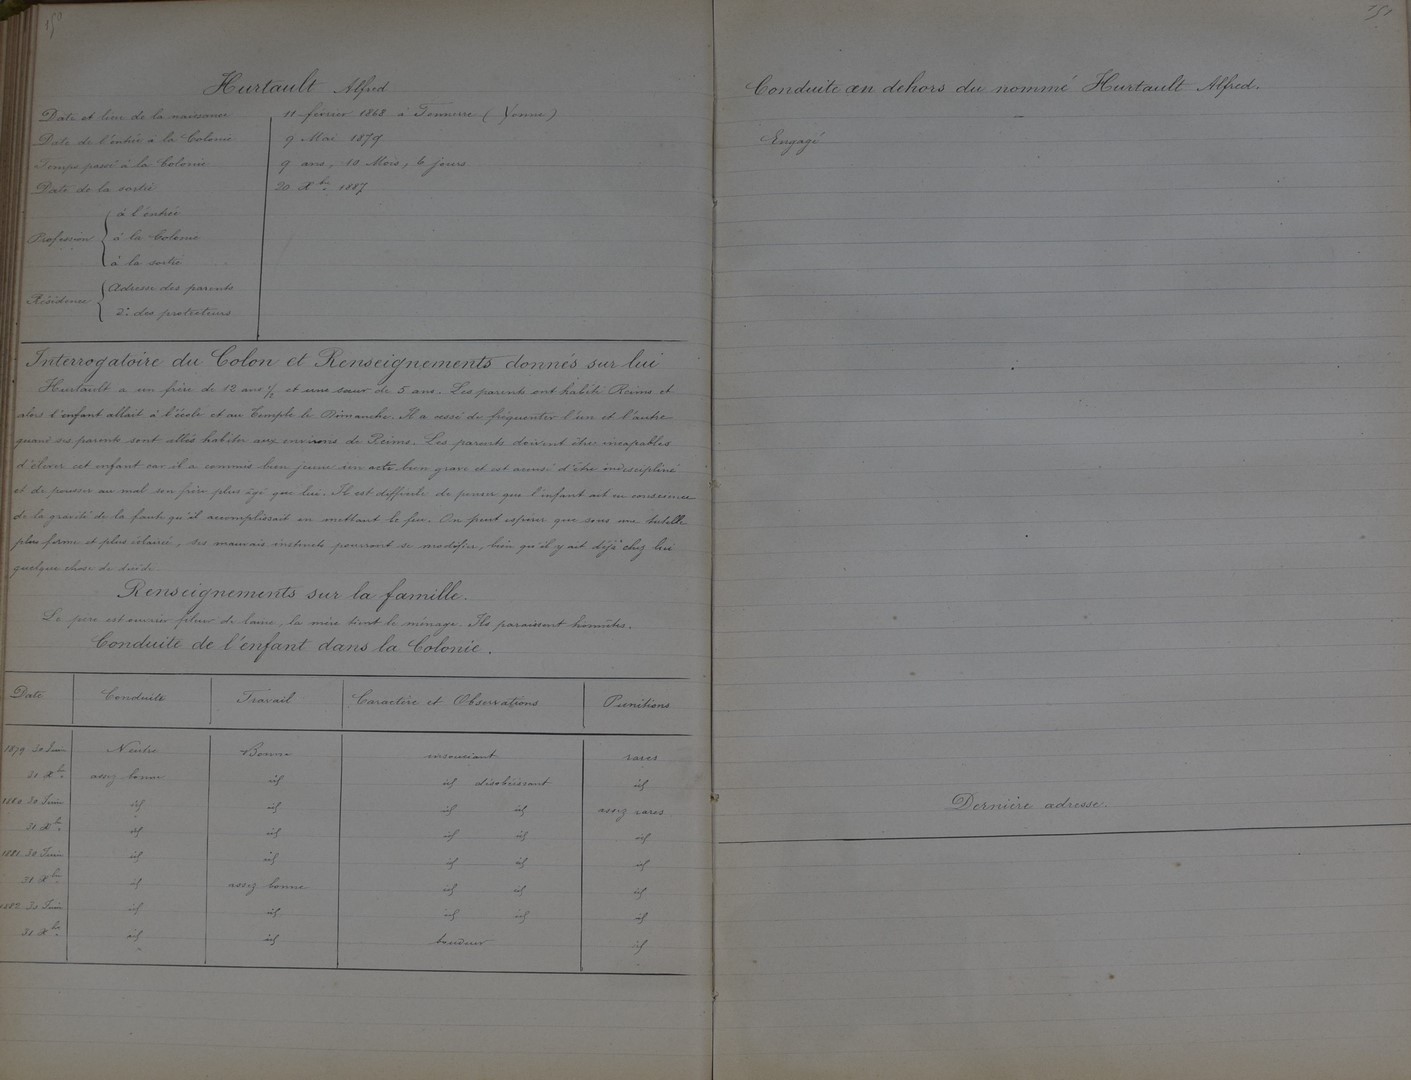 150
Hurtault Alfred
Date et lieu de la naissance 11 février 1868 à Tonnerre (Yonne)
Date de l'entrée à la Colonie 9 Mai 1879
Temps passé à la Colonie 9 ans, 10 Mois, 6 jours
Date de la sortie 20 Xbre 1887
Profession
à l'entrée
à la Colonie
à la sortie
Résidence
Adresse des parents
d° des protecteurs
Interrogatoire du Colon et Renseignements donnés sur lui
Hurtault a un frère de 12 ans 1/2 et une sœur de 5 ans. Les parents ont habité Reims et
alors l'enfant allait à l'école et au Temple le Dimanche. Il a cessé de fréquenter l'un et l'autre
quand ses parents sont allés habiter aux environs de Reims. Les parents doivent être incapables
d'élever cet enfant car il a commis bien jeune un acte bien grave et est accusé d'être indiscipliné
et de pousser au mal son frère plus âgé que lui. Il est difficile de penser que l'enfant ait eu conscience
de la gravité de la faute qu'il accomplissait en mettant le feu. On peut espérer que sous une tutelle
plus ferme et plus éclairée, ses mauvais instincts pourront se modifier, bien qu'il y ait déjà chez lui
quelque chose de
Renseignements sur la famille.
Le père est ouvrier fileur de laine, la mère tient le ménage. Ils paraissent honnêtes.
Conduite de l'enfant dans la Colonie.
Date Conduite Travail Caractère et Observations Punitions
1879 30 Juin Neutre Bonne insouciant rares
31 Xbre assez bonne id id désobéissant id
1880 30 Juin id id id id assez rares
31 Xbre id id id id id
1881 30 Juin id id id id id
31 Xbre id assez bonne id id id
1882 30 Juin id id id id id
31 Xbre id id boudeur id
151
Conduite en dehors du nommé Hurtault Alfred.
Engagé
Dernière adresse.